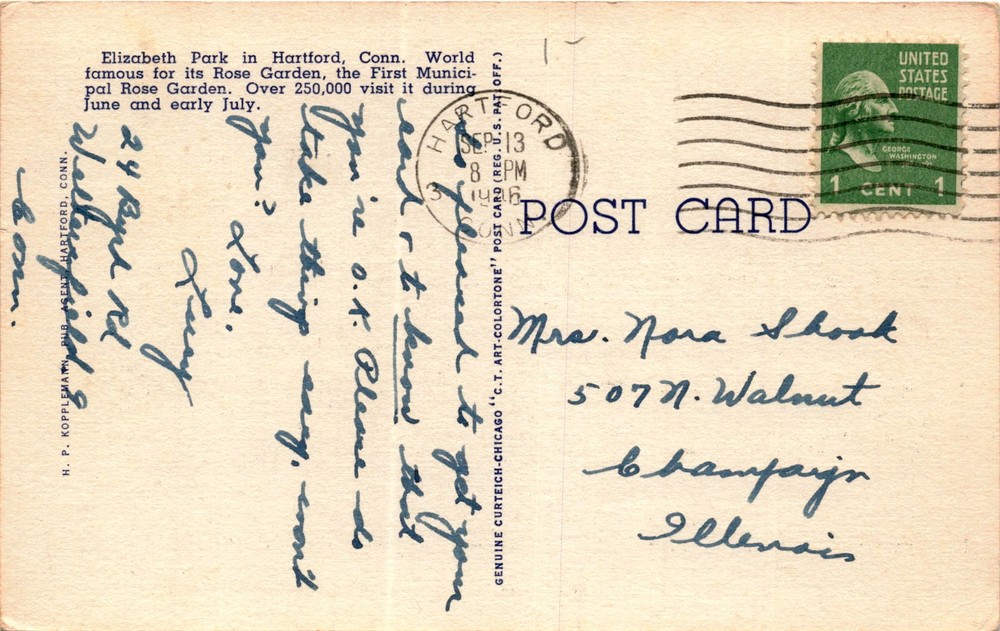 Elizabeth Park in Hartford, Conn. World
famous for its Rose Garden, the First Munici-
pal Rose Garden. Over 250,000 visit it during
June and early July.
was pleased to get your
card & to know that
you're O.K. Please do
take things easy, won't
you? Love,
Lucy
24 Byrd Rd
Wethersfield 9
Conn.
H. P. KOPPLEMANN, PUB. AGENT, HARTFORD, CONN.
GENUINE CURTEICH-CHICAGO "C.T. ART-COLORTONE" POST CARD (REG. U.S. PAT. OFF.)
HARTFORD
SEP 13
8 PM
1946
CONN
3
UNITED
STATES
POSTAGE
GEORGE
WASHINGTON
1 CENT 1
POST CARD
Mrs. Nora Shook
507 N. Walnut
Champaign
Illenois